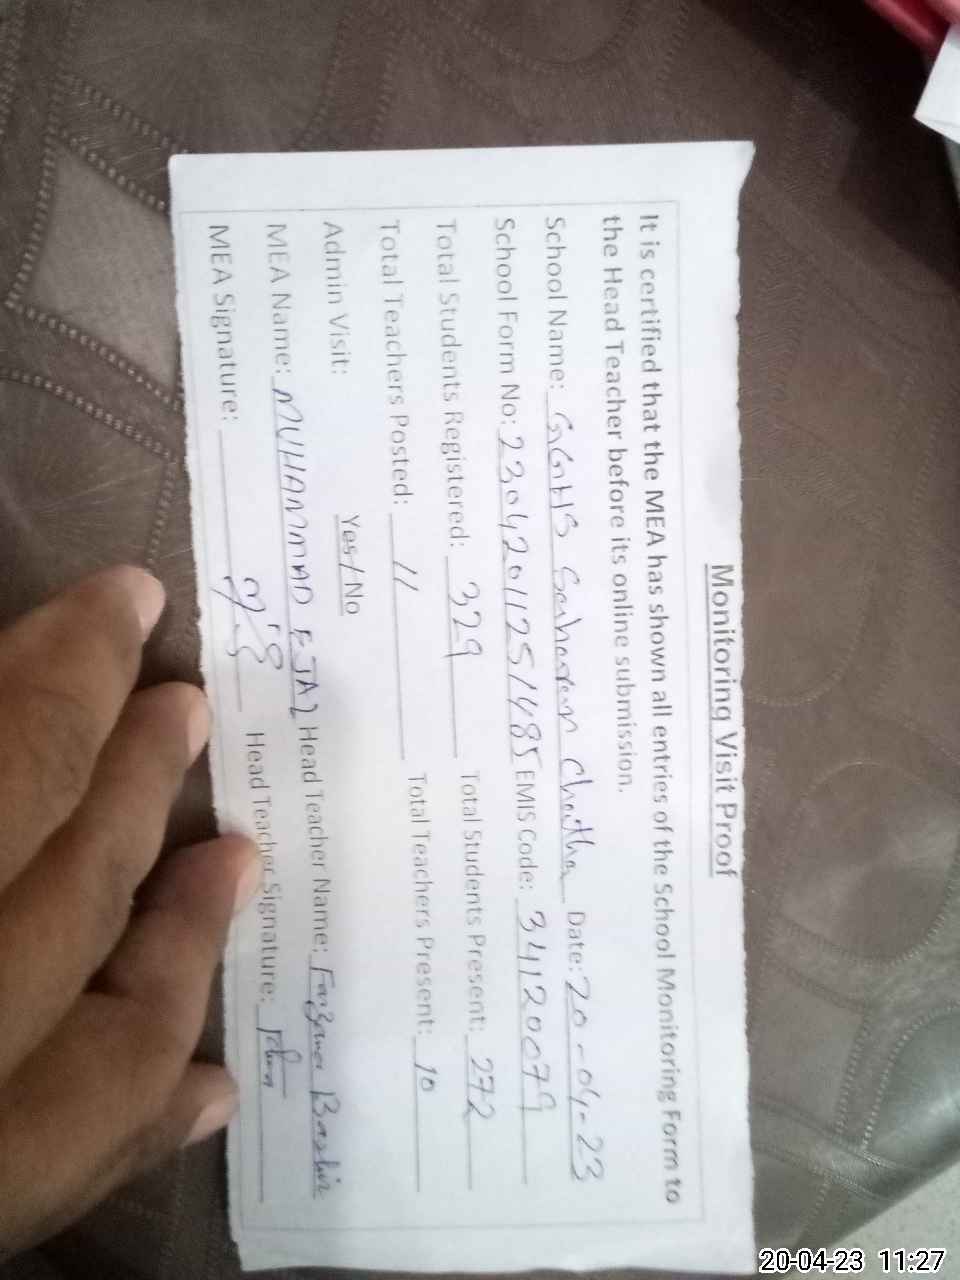 Monitoring Visit Proof
It is certified that the MEA has shown all entries of the School Monitoring Form to
the Head Teacher before its online submission.
School Name: GGHS Chautha Date: 20-04-23
School Form No: 23042011251485 EMIS Code: 34120079
Total Students Registered: 329 Total Students Present: 272
Total Teachers Posted: 11 Total Teachers Present: 10
Admin Visit: Yes/No
MEA Name: MUHAMMAD EJAZ Head Teacher Name: Farzana Bashir
MEA Signature: Head Teacher Signature:
20-04-23 11:27